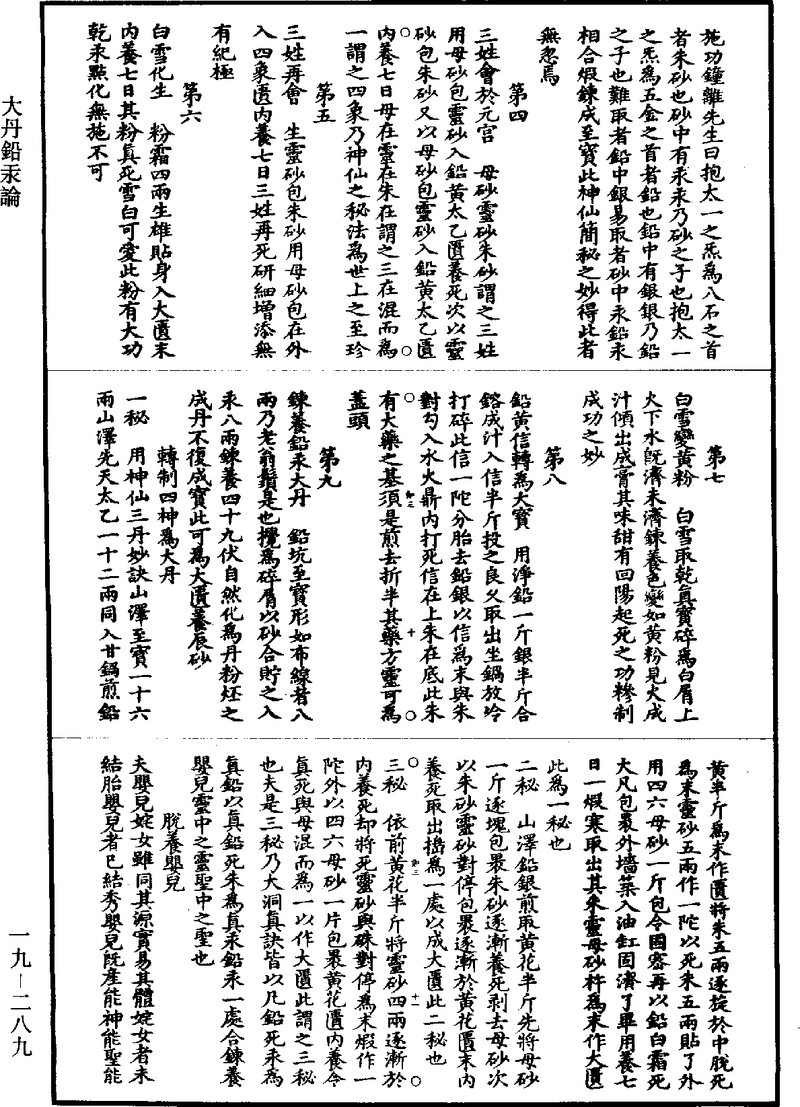 大丹鉛汞論
一九—二八九
施功鍾離先生曰抱太一之炁爲八石之首
者朱砂也砂中有汞汞乃砂之子也抱太一
之炁爲五金之首者鉛也鉛中有銀銀乃鉛
之子也難取者鉛中銀易取者砂中汞鉛汞
相合煅鍊成至寶此神仙簡秘之妙得此者
無忽焉
第四
三姓會於元宮　母砂靈砂朱砂謂之三姓
用母砂包靈砂入鉛黃太乙匱養死次以靈
砂包朱砂又以母砂包靈砂入鉛黃太乙匱
内養七日母在靈在朱在謂之三在混而爲
一謂之四象乃神仙之秘法爲世上之至珍
第五
三姓再會　生靈砂包朱砂用母砂包在外
入四象匱内養七日三姓再死研細增添無
有紀極
第六
白雪化生　粉霜四兩生雄貼身入大匱末
内養七日其粉真死雪白可愛此粉有大功
乾汞點化無施不可
第七
白雪變黃粉　白雪取乾真寶碎爲白屑上
火下水旣濟未濟鍊養色變如黃粉見火成
汁傾出成膏其味甜有回陽起死之功糝制
成功之妙
第八
鉛黃信轉爲大寶　用淨鉛一斤銀半斤合
鎔成汁入信半斤投之良久取出坐鍋放冷
打碎此信一陀分胎去鉛銀以信爲末與朱
對勾入水火鼎内打死信在上朱在底此朱
有大藥之基須是煎去折半其藥方靈可爲
蓋頭
第九
鍊養鉛汞大丹　鉛坑至寶形如布線者八
兩乃老翁鬚是也攪爲碎屑以砂合貯之入
汞八兩鍊養四十九伏自然化爲丹粉炷之
成丹不復成寶此可爲大匱養辰砂
轉制四神爲大丹
一秘　用神仙三丹妙訣山澤至寶一十六
兩山澤先天太乙一十二兩同入甘鍋煎鉛
黃半斤爲末作匱將朱五兩逐掟於中脫死
爲末靈砂五兩作一陀以死朱五兩貼了外
用四六母砂一斤包令固密再以鉛白霜死
大凡包裹外墻築入油缸固濟了畢用養七
日一煅寒取出其朱靈母砂杵爲末作大匱
此爲一秘也
二秘　山澤鉛銀煎取黃花半斤先將母砂
一斤逐塊包裹朱砂逐漸養死剥去母砂次
以朱砂靈砂對停包裹逐漸於黃花匱末内
養死取出擣爲一處以成大匱此二秘也
三秘　依前黃花半斤將靈砂四兩逐漸於
内養死却將死靈砂與硃對停爲末煅作一
陀外以四六母砂一片包裹黃花匱内養令
真死與母混而爲一以作大匱此謂之三秘
也夫是三秘乃大洞真訣皆以凡鉛死汞爲
真鉛以真鉛死朱爲真汞鉛汞一處合鍊養
嬰兒靈中之靈聖中之聖也
脫養嬰兒
夫嬰兒姹女雖同其源實易其體姹女者未
結胎嬰兒者已結秀嬰兒旣產能神能聖能